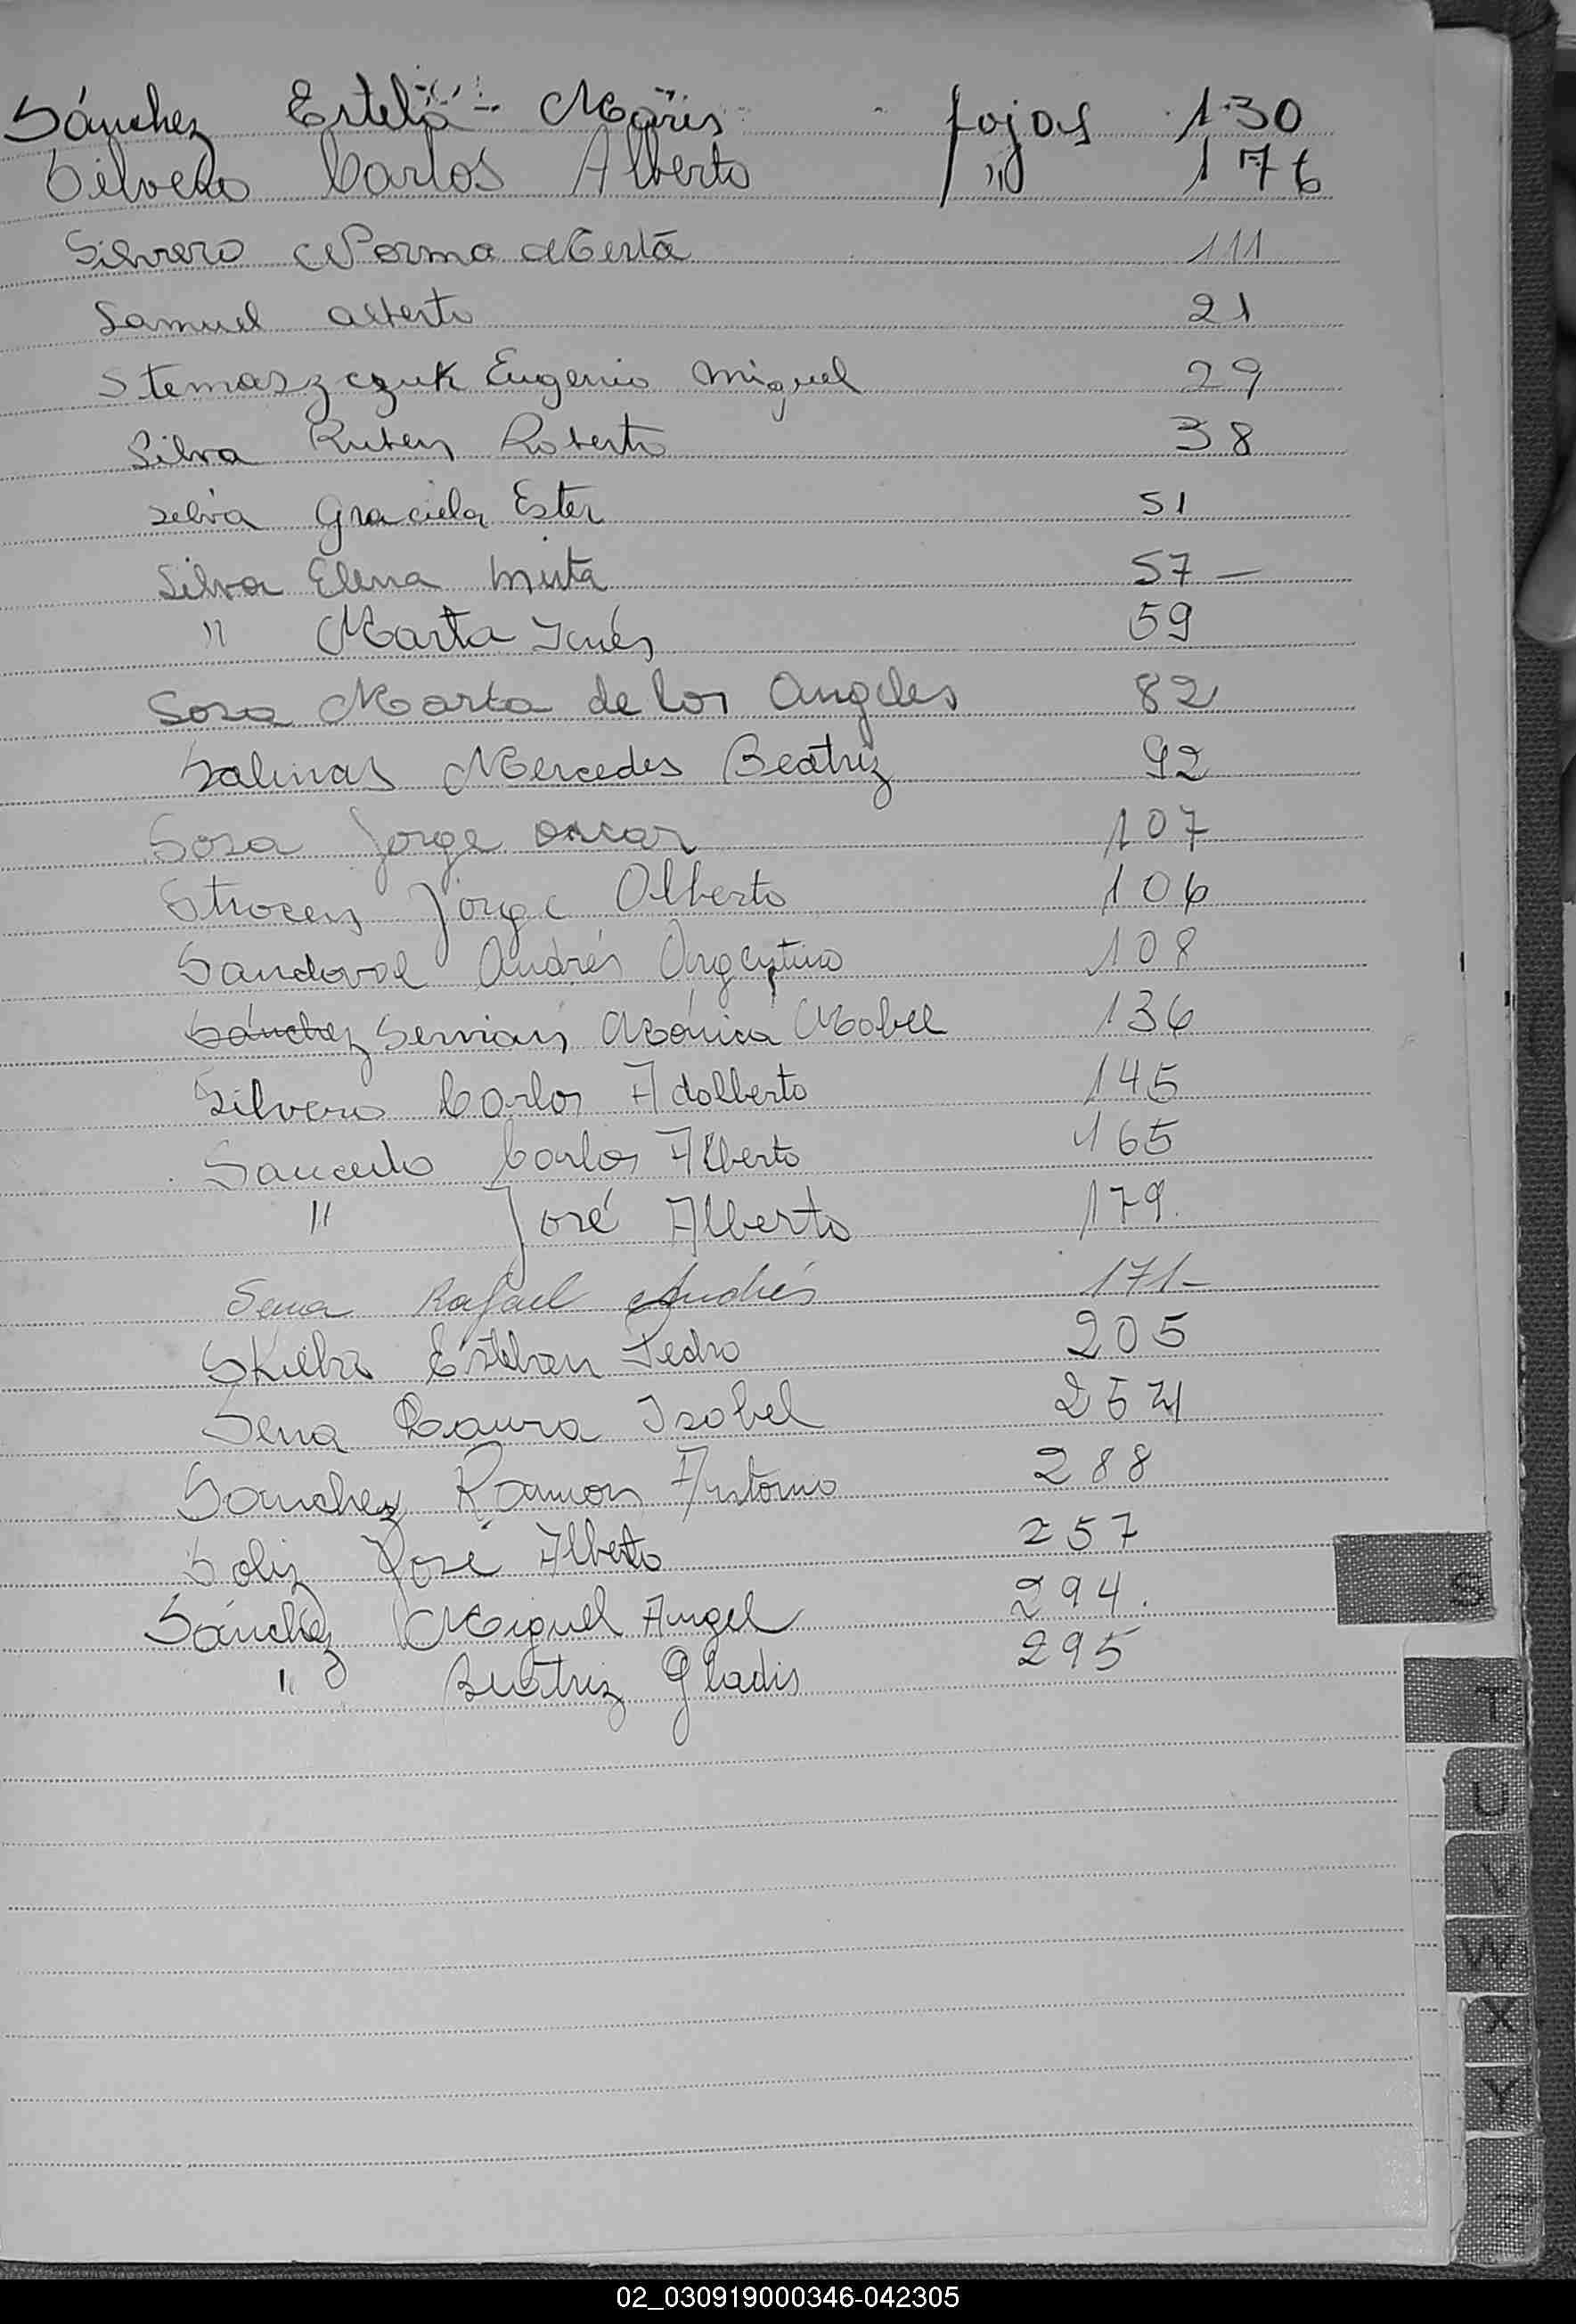 Sánchez Estela Maris fojas 130
Silvero Carlos Alberto " 176
Silvero Norma Berta 111
Samuel Alberto 21
Stemaszczuk Eugenio Miguel 29
Silva Ruben Roberto 38
Selva Graciela Ester 51
Silva Elena Mirta 57 -
" Marta Inés 59
Sosa Marta de los Angeles 82
Salinas Mercedes Beatriz 92
Sosa Jorge Oscar 107
Jorge Alberto 106
Sandoval Andrés Argentino 108
Sánchez Servian Mónica Mabel 136
Silvero Carlos Adalberto 145
Saucedo Carlos Alberto 165
" José Alberto 179.
Sena Rafael Andrés 171-
Esteban Pedro 205
Sena Laura Isabel
Sanchez Ramon Antonio 288
Soliz José Alberto 257
Sánchez Miguel Angel 294.
" Beatriz Gladis 295
S
T
U
V
W
X
Y
Z
02_030919000346-042305